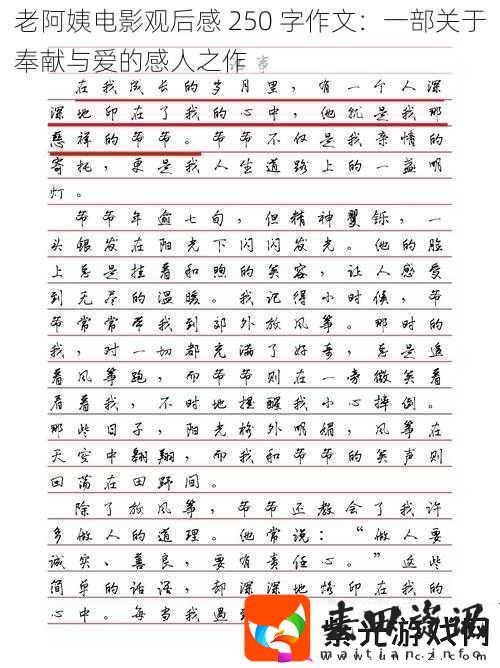 老阿姨电影观后感 250 字作文：一部关于
奉献与爱的感人之作
事
在我成长的岁月里，有一个人深
深地印在了我的心中，他就是我那
慈祥的爷爷。爷爷不仅是我亲情的
寄托，更是我人生道路上的一盏明
灯。
爷爷年逾七旬，但精神矍铄，一
头银发在阳光下闪闪发光。他的脸
上总是挂着和煦的笑容，让人感受
到无尽的温暖。我记得小时候，爷
爷常常带我到郊外放风筝。那时的
我，对一切都充满了好奇，总是追
着风筝跑，而爷爷则在一旁微笑着
看着我，不时地提醒我小心摔倒。
那些日子，阳光格外明媚，风筝在
天空中翱翔，而我和爷爷的笑声则
回荡在田野间。
除了放风筝，爷爷还教会了我许
多做人的道理。他常说：“做人要
诚实、善良，要有责任心。”这些
简单的话语，却深深地烙印在我的
心中。每当我遇到
紫光游戏网
www.czlxzx.com
maitian.info